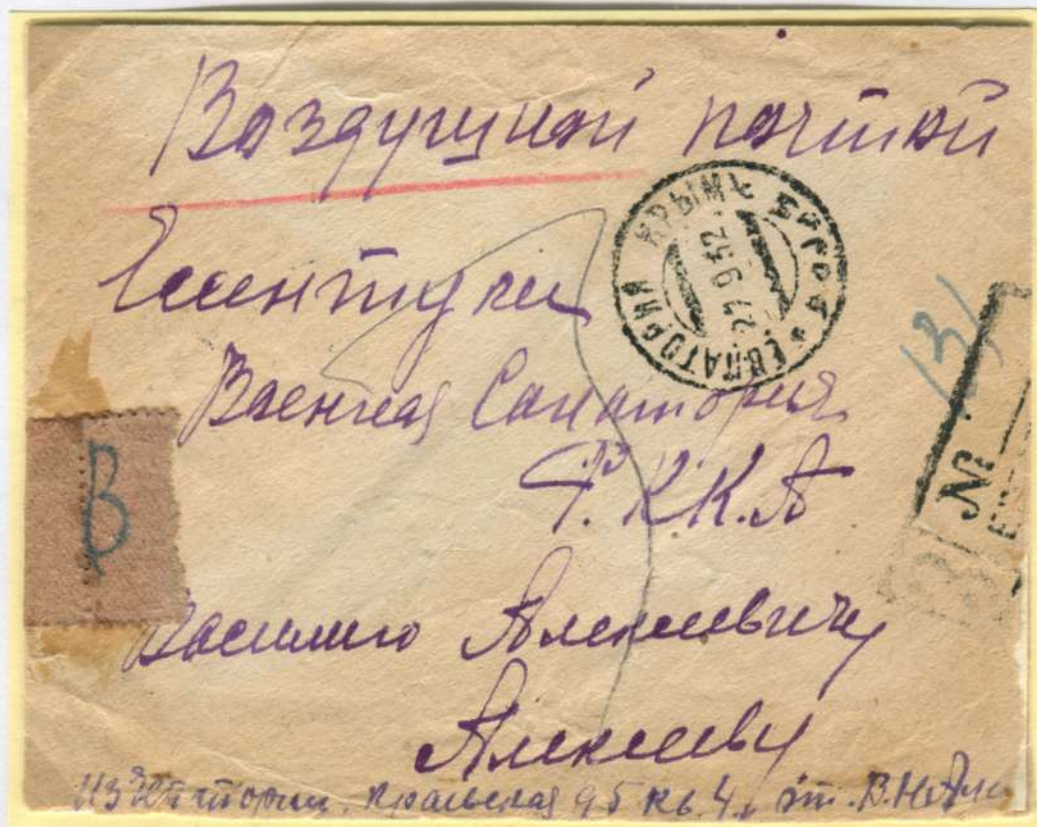 Воздушной почтой
ЕВПАТОРИЯ КРЫМ
27 9 52
Ессентуки
Военная Санатория
Р.К.К.А
131
№
В
Василию Алексеевичу
Алексееву
из Евпатории, 95 кв. 4, от. В.Н.